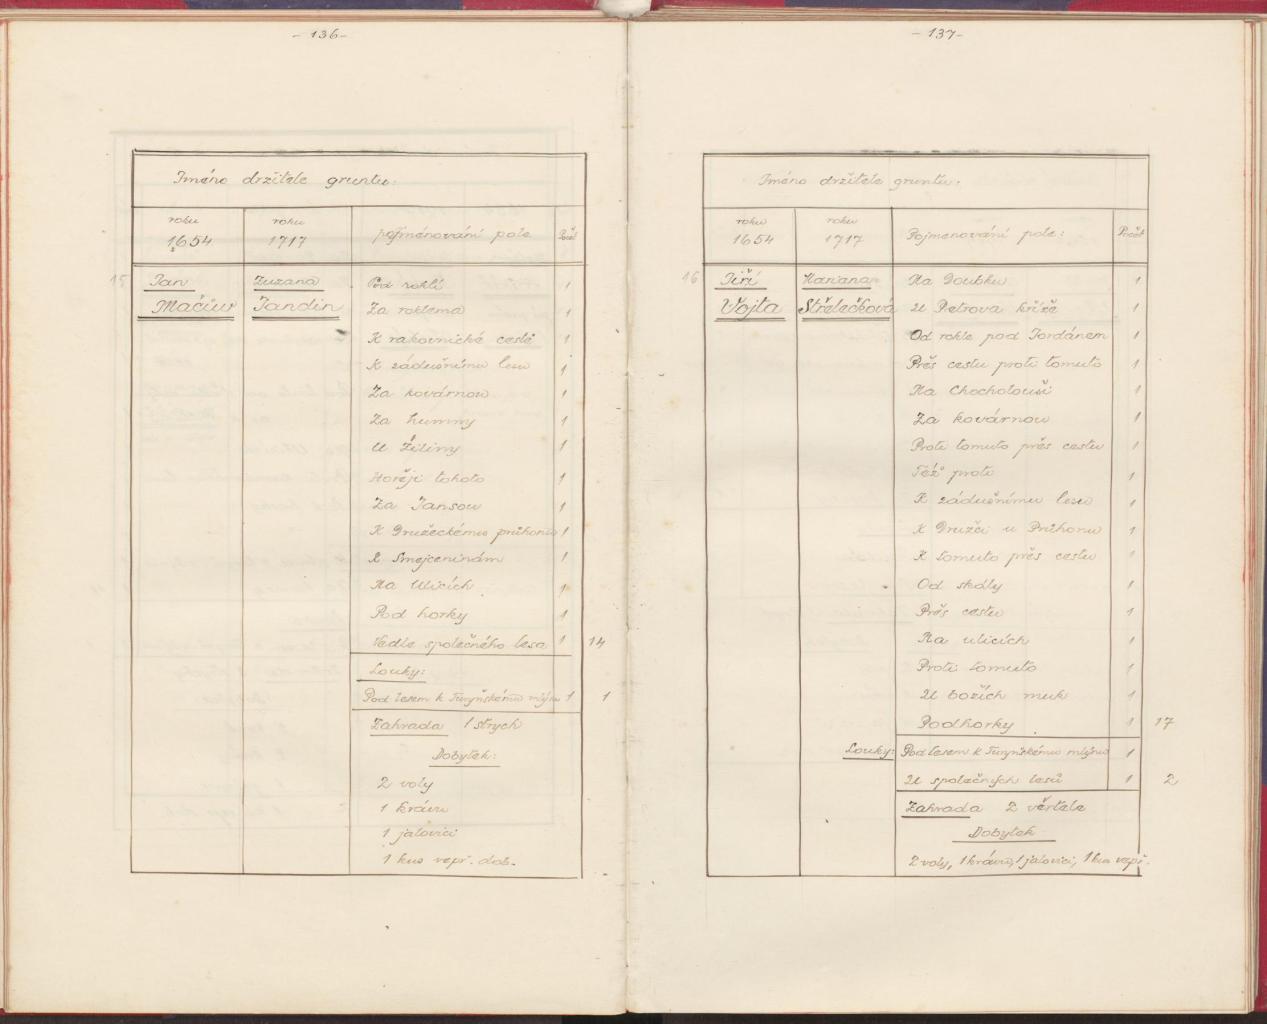 - 136 -
Jméno držitele gruntu:
roku
1654
roku
1717
pojmenování pole
Počet
15 Jan Zuzana Pod roklí 1
Mačůw Jandin Za roklema 1
K rakovnické cestě 1
K zádušnímu lesu 1
Za kovárnou 1
Za humny 1
U Žiliny 1
Hořeji tohoto 1
Za Jansou 1
K Družeckému průhonu 1
K Smejceninám 1
Na Ulicích 1
Pod horky 1
Vedle společného lesa 1 14
Louky:
Pod lesem k Turyňskému mlýnu 1 1
Zahrada 1 strych
Dobytek:
2 voly
1 krávu
1 jalovici
1 kus vepř. dob.
- 137 -
Jméno držitele gruntu:
roku
1654
roku
1717
Pojmenování pole:
Počet
16 Jiří Na Doubku 1
Vojta Střelečková U Petrova kříže 1
Od rokle pod Jordánem 1
Přes cestu proti tomuto 1
Na Chocholouši 1
Za kovárnou 1
Proti tomuto přes cestu 1
Též proti 1
K zádušnímu lesu 1
K Družci u Průhonu 1
K tomuto přes cestu 1
Od skály 1
Přes cestu 1
Na ulicích 1
Proti tomuto 1
U božích muk 1
Podhorky 1 17
Louky: Pod lesem k Turyňskému mlýnu 1
U společných lesů 1 2
Zahrada 2 věrtele
Dobytek
2 voly, 1 krávu, 1 jalovici, 1 kus vepř.